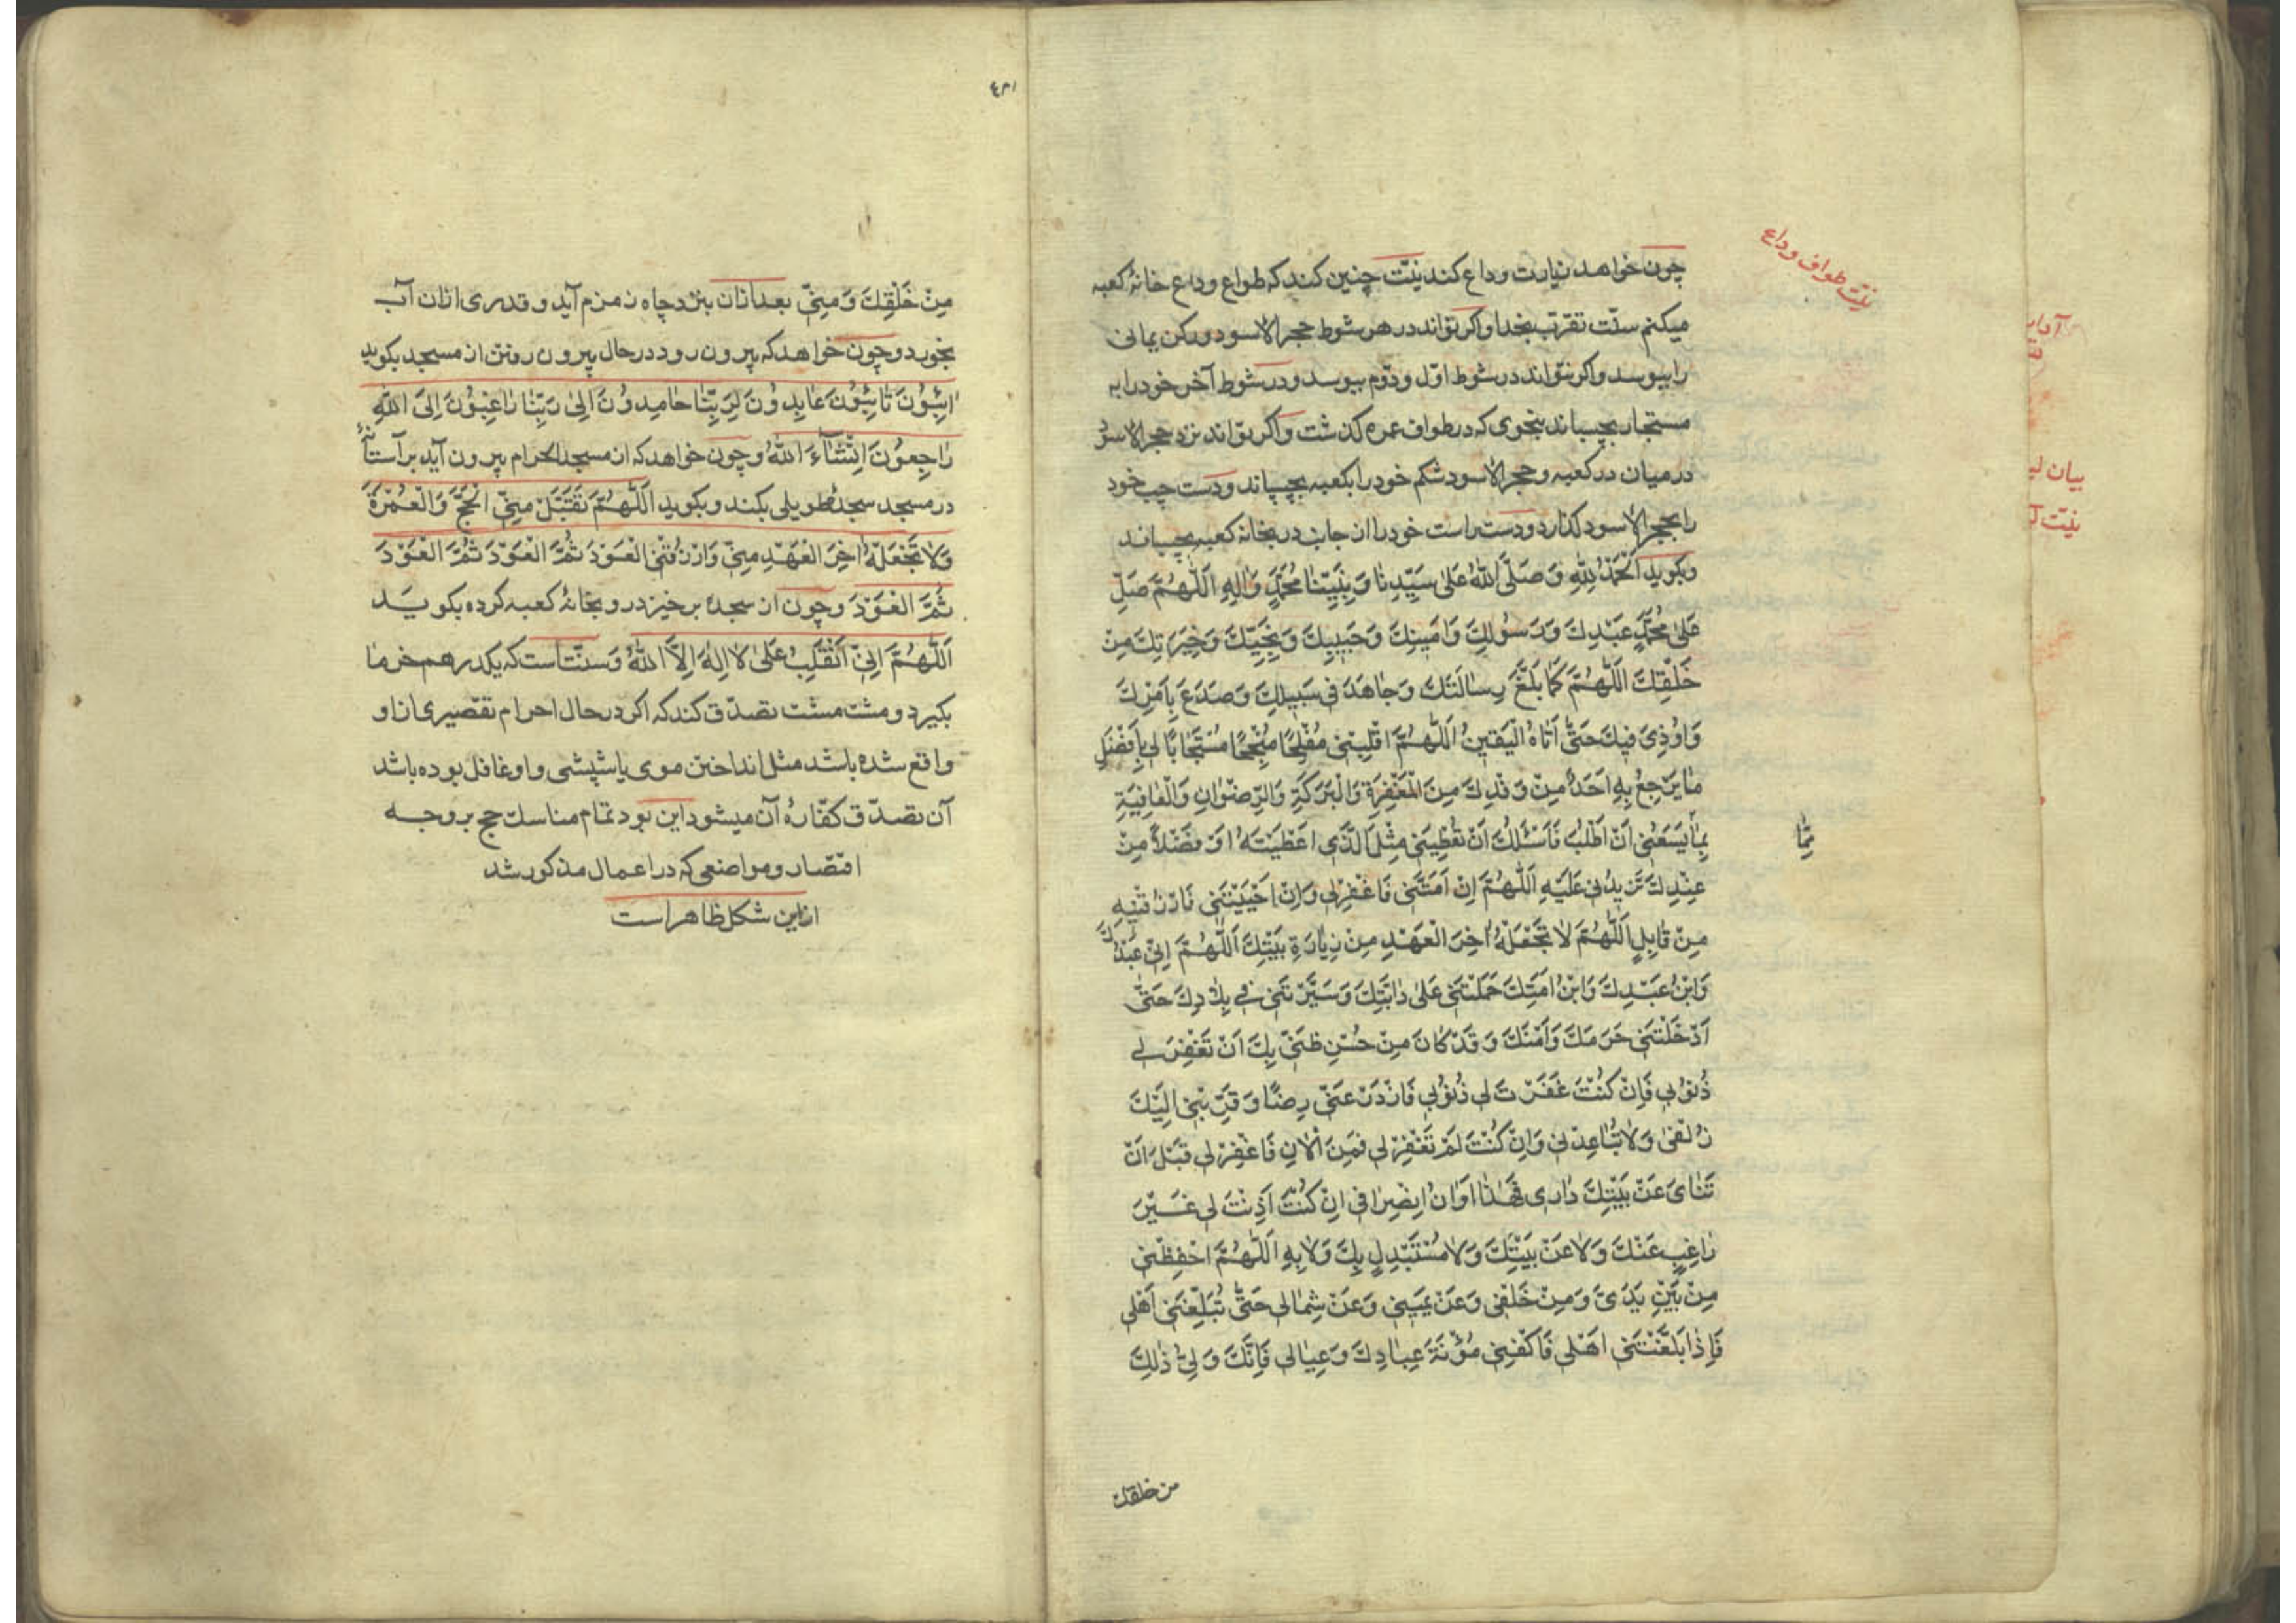 نیّت طواف وداع
چون خواهد زیارت وداع کند نیّت چنین کند که طواع وداع خانهٔ کعبه
میکنم سنّت تقرّب بخدا و اکر تواند در هر شوط حجر الاسود و رکن یمانی
را ببوسد و اکر نتواند در شوط اوّل و دوّم ببوسد و در شوط آخر خود را به
مستجار بچسباند بنحوی که در طواف عمره کذشت و اکر تواند نزد حجر الاسود
در میان در کعبه و حجر الاسود شکم خود را بکعبه بچسپاند و دست چپ خود
را بحجر الاسود کذارد و دست راست خود را از جانب در بخانه کعبه بچسباند
و بکوید اَلْحَمْدُ لِلّٰهِ وَ صَلَّی اللّٰهُ عَلٰی سَیِّدِنَا وَ نَبِیِّنَا مُحَمَّدٍ وَ اٰلِهِ اَللّٰهُمَّ صَلِّ
عَلٰی مُحَمَّدٍ عَبْدِكَ وَ رَسُولِكَ وَ اَمینِكَ وَ حَبیبِكَ وَ نَجِیِّكَ وَ خِیَرَتِكَ مِنْ
خَلْقِكَ اَللّٰهُمَّ كَمَا بَلَّغَ رِسٰالَتَكَ وَ جٰاهَدَ فی سَبیلِكَ وَ صَدَعَ بِاَمْرِكَ
وَ اُوذِیَ فیكَ حَتّٰی اَتٰاهُ الْیَقینُ اَللّٰهُمَّ اقْلِبْنی مُفْلِحًا مُنْجِحًا مُسْتَجٰابًا لی بِاَفْضَلِ
مٰا یَرْجِعُ بِهِ اَحَدٌ مِنْ وَفْدِكَ مِنَ الْمَغْفِرَةِ وَ الْبَرَكَةِ وَ الرِّضْوٰانِ وَ الْعٰافِیَةِ
مِمّٰا
بِمٰا یَسَعُنی اَنْ اَطْلُبَ فَاَسْئَلُكَ اَنْ تُعْطِیَنی مِثْلَ الَّذی اَعْطَیْتَهُ اَوْ فَضْلاً مِنْ
عِنْدِكَ تَزیدُنی عَلَیْهِ اَللّٰهُمَّ اِنْ اَمَتَّنی فَاغْفِرْلی وَ اِنْ اَحْیَیْتَنی فَارْزُقْنیهِ
مِنْ قٰابِلٍ اَللّٰهُمَّ لاٰ تَجْعَلْهُ اٰخِرَ الْعَهْدِ مِنْ زِیٰارَةِ بَیْتِكَ اَللّٰهُمَّ اِنّی عَبْدُكَ
وَ ابْنُ عَبْدِكَ وَ ابْنُ اَمَتِكَ حَمَلْتَنی عَلٰی دٰابَّتِكَ وَ سَیَّرْتَنی فی بِلاٰدِكَ حَتّٰی
اَدْخَلْتَنی حَرَمَكَ وَ اَمْنَكَ وَ قَدْ كٰانَ مِنْ حُسْنِ ظَنّی بِكَ اَنْ تَغْفِرَ لی
ذُنُوبی فَاِنْ كُنْتَ غَفَرْتَ لی ذُنُوبی فَازْدَدْ عَنّی رِضًا وَ قَرِّبْنی اِلَیْكَ
زُلْفٰی وَ لاٰ تُبٰاعِدْنی وَ اِنْ كُنْتَ لَمْ تَغْفِرْ لی فَمِنَ الْاٰنِ فَاغْفِرْ لی قَبْلَ اَنْ
تَنْاٰی عَنْ بَیْتِكَ دٰاری فَهٰذٰا اَوٰانُ انْصِرٰافی اِنْ كُنْتَ اَذِنْتَ لی غَیْرَ
رٰاغِبٍ عَنْكَ وَ لاٰ عَنْ بَیْتِكَ وَ لاٰ مُسْتَبْدِلٍ بِكَ وَ لاٰ بِهِ اَللّٰهُمَّ احْفِظْنی
مِنْ بَیْنِ یَدَیَّ وَ مِنْ خَلْفی وَ عَنْ یَمینی وَ عَنْ شِمٰالی حَتّٰی تُبَلِّغَنی اَهْلی
فَاِذٰا بَلَّغْتَنی اَهْلی فَاكْفِنی مَؤُنَةَ عِبٰادِكَ وَ عِیٰالی فَاِنَّكَ وَلِیُّ ذٰلِكَ
من خلقك
بیان
نیّت
مِنْ خَلْقِكَ وَ مِنّی بعد از ان بنزد چاه زمزم آید و قدری از ان آب
بخورد و چون خواهد که بیرون رود در حال بیرون رفتن از مسجد بکوید
اٰئِبُونَ تٰائِبُونَ عٰابِدُونَ لِرَبِّنٰا حٰامِدُونَ اِلٰی رَبِّنٰا رٰاغِبُونَ اِلَی اللّٰهِ
رٰاجِعُونَ اِنْشٰآءَ اللّٰهُ و چون خواهد که از مسجد الحرام بیرون آید بر آستانهٔ
در مسجد سجدهٔ طویلی بکند و بکوید اَللّٰهُمَّ تَقَبَّلْ مِنّی الْحَجَّ وَ الْعُمْرَةَ
وَ لاٰ تَجْعَلْهُ اٰخِرَ الْعَهْدِ مِنّی وَ ارْزُقْنی الْعَوْدَ ثُمَّ الْعَوْدَ ثُمَّ الْعَوْدَ
ثُمَّ الْعَوْدَ و چون از سجده برخیزد رو بخانهٔ کعبه کرده بکوید
اَللّٰهُمَّ اِنّی اَنْقَلِبُ عَلٰی لاٰ اِلٰهَ اِلاَّ اللّٰهُ و سنّت است که یکدرهم خرما
بکیرد و مشت مشت تصدّق کند که اکر در حال احرام تقصیری از او
واقع شده باشد مثل انداختن موی یا شپشی و او غافل بوده باشد
آن تصدّق کفّارهٔ آن میشود این بود تمام مناسك حج بر وجه
اقتصار و مواضعی که در اعمال مذکور شد
از این شکل ظاهر است